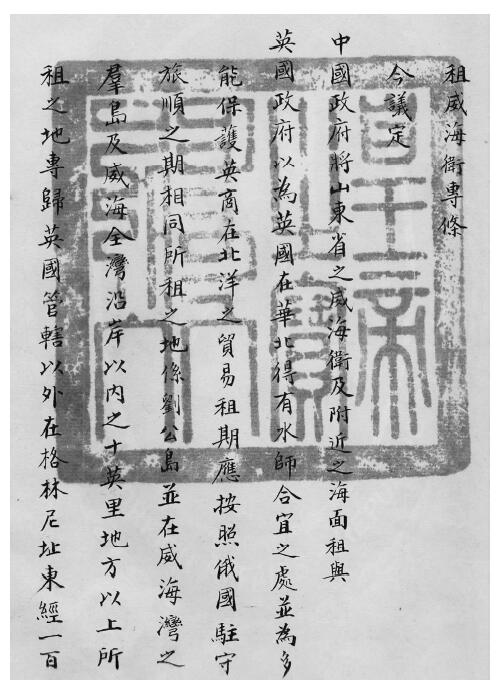 租威海衛專條
今議定
中國政府將山東省之威海衛及附近之海面租與
英國政府以為英國在華北得有水師合宜之處並為多
能保護英商在北洋之貿易租期應按照俄國駐守
旅順之期相同所租之地係劉公島並在威海灣之
羣島及威海全灣沿岸以內之十英里地方以上所
租之地專歸英國管轄以外在格林尼址東經一百